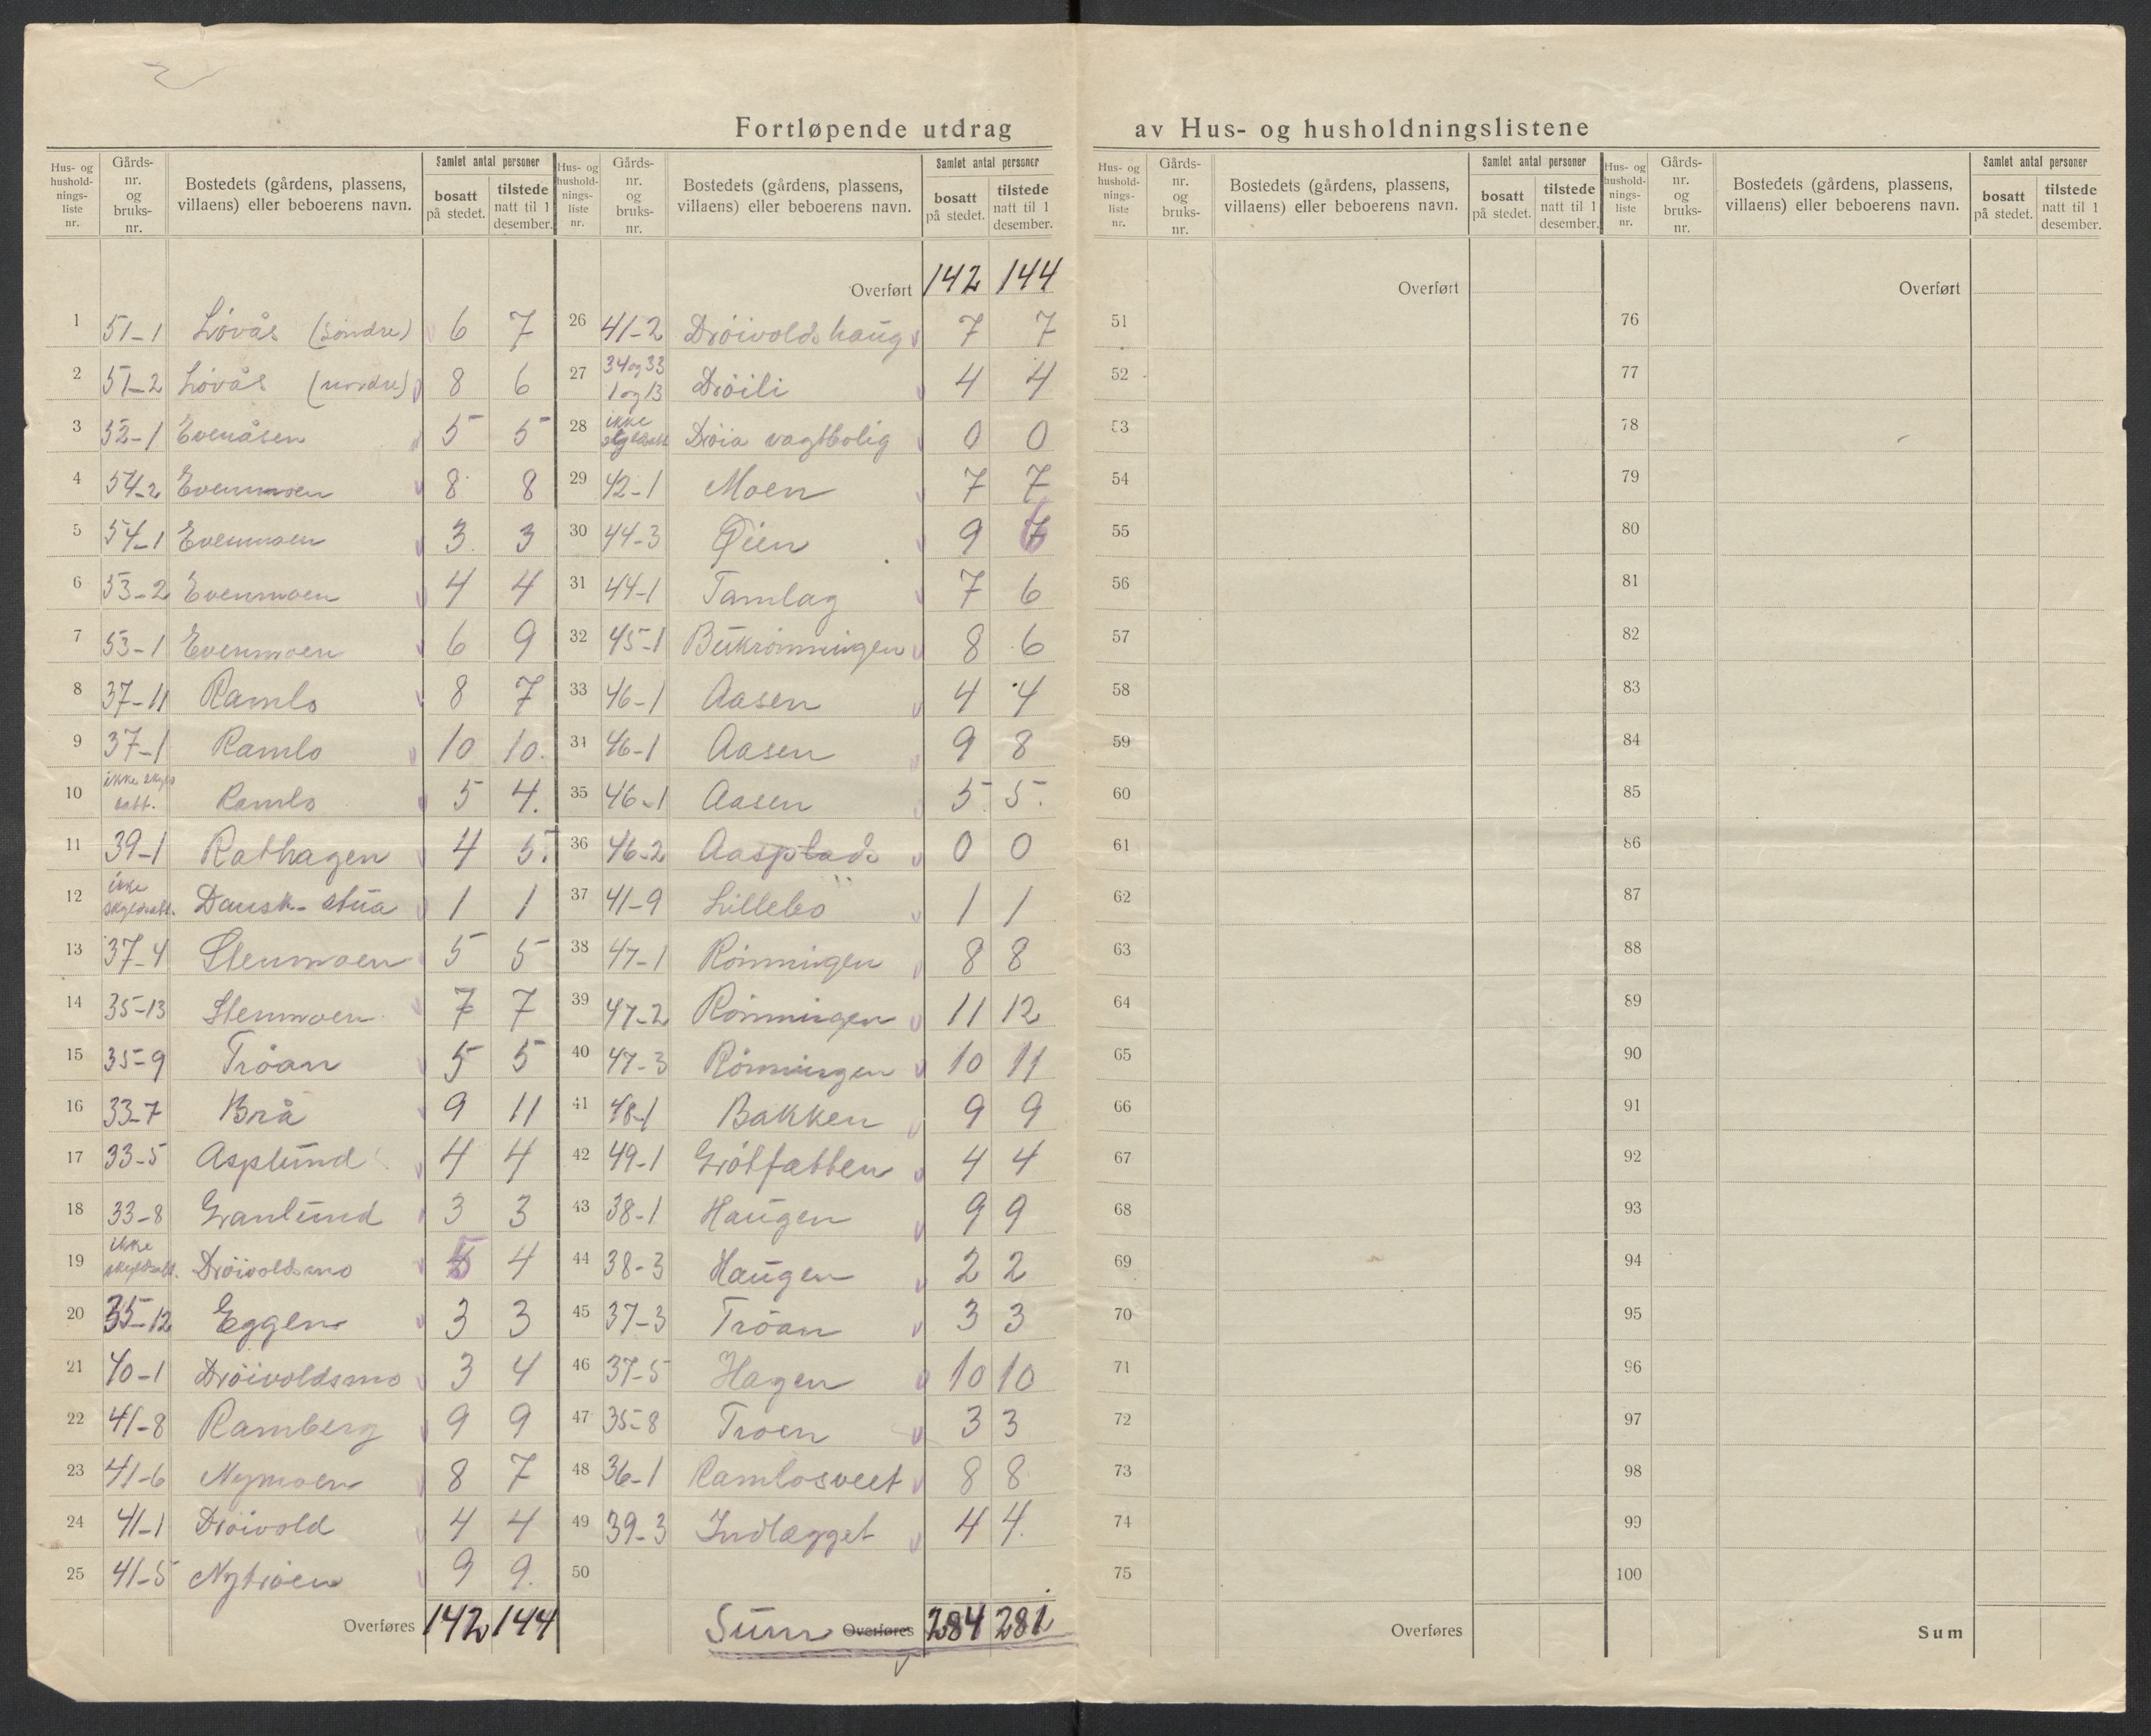 Fortløpende utdrag av Hus- og husholdningslistene
Hus- og husholdningsliste nr. | Gårds-nr. og bruks-nr. | Bostedets (gårdens, plassens, villaens) eller beboerens navn. | Samlet antal personer bosatt på stedet. | tilstede natt til 1 desember.
1 51-1 Lövås (söndre) 6 7
2 51-2 Lövås (nordre) 8 6
3 52-1 Evenåsen 5 5
4 54-2 Evenmoen 8 8
5 54-1 Evenmoen 3 3
6 53-2 Evenmoen 4 4
7 53-1 Evenmoen 6 9
8 37-11 Ramlo 8 7
9 37-1 Ramlo 10 10.
10 ikke skyldsatt. Ramlo 5 4.
11 39-1 Rathagen 4 5.
12 ikke skyldsatt. Dansk-stua 1 1
13 37-4 Stenmoen 5 5
14 35-13 Stenmoen 7 7
15 35-9 Tröan 5 5
16 33-7 Brå 9 11
17 33-5 Asplund 4 4
18 33-8 Granlund 3 3
19 ikke skyldsatt. Dröivoldsmo 5 4
20 35-12 Eggen 3 3
21 40-1 Dröivoldsmo 3 4
22 41-8 Ramberg 9 9
23 41-6 Nymoen 8 7
24 41-1 Dröivold 4 4
25 41-5 Nytröen 9 9.
Overføres 142 144
Hus- og husholdningsliste nr. | Gårds-nr. og bruks-nr. | Bostedets (gårdens, plassens, villaens) eller beboerens navn. | Samlet antal personer bosatt på stedet. | tilstede natt til 1 desember.
Overført 142 144
26 41-2 Dröivoldshaug 7 7
27 34 og 33 1 og 13 Dröili 4 4
28 ikke skyldsatt Dröia vagtbolig 0 0
29 42-1 Moen 7 7
30 44-3 Øien 9 6
31 44-1 Tamlag 7 6
32 45-1 Bukrönningen 8 6
33 46-1 Aasen 4 4
34 46-1 Aasen 9 8
35 46-1 Aasen 5 5.
36 46-2 Aasplads 0 0
37 41-9 Lillebö 1 1
38 47-1 Rönningen 8 8
39 47-2 Rönningen 11 12
40 47-3 Rönningen 10 11
41 48-1 Bakken 9 9
42 49-1 Grötfatten 4 4
43 38-1 Haugen 9 9
44 38-3 Haugen 2 2
45 37-3 Tröan 3 3
46 37-5 Hagen 10 10
47 35-8 Troen 3 3
48 36-1 Ramlosveet 8 8
49 39-3 Indlægget 4 4.
50
Sum Overføres 284 281
Hus- og husholdningsliste nr. | Gårds-nr. og bruks-nr. | Bostedets (gårdens, plassens, villaens) eller beboerens navn. | Samlet antal personer bosatt på stedet. | tilstede natt til 1 desember.
Overført
51
52
53
54
55
56
57
58
59
60
61
62
63
64
65
66
67
68
69
70
71
72
73
74
75
Overføres
Hus- og husholdningsliste nr. | Gårds-nr. og bruks-nr. | Bostedets (gårdens, plassens, villaens) eller beboerens navn. | Samlet antal personer bosatt på stedet. | tilstede natt til 1 desember.
Overført
76
77
78
79
80
81
82
83
84
85
86
87
88
89
90
91
92
93
94
95
96
97
98
99
100
Sum